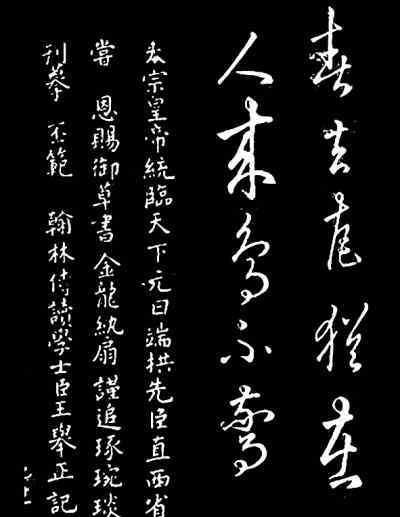 春去花猶在
人來鳥不驚
太宗皇帝統臨天下元曰端拱先臣直西省
嘗 恩賜御草書金龍紈扇謹追琢琬琰
刊摹 丕範 翰林侍讀學士臣王舉正記